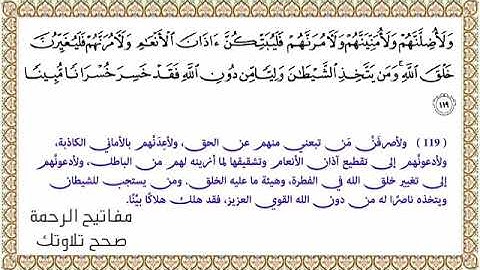 وَلَأُضِلَّنَّهُمْ وَلَأُمَنِّيَنَّهُمْ وَلَأَمُرَنَّهُمْ فَلَيُبَتِّكُنَّ ءَاذَانَ الْأَنْعَامِ وَلَأَمُرَنَّهُمْ فَلَيُغَيِّرُنَّ
خَلْقَ اللَّهِ ۚ وَمَن يَتَّخِذِ الشَّيْطَانَ وَلِيًّا مِّن دُونِ اللَّهِ فَقَدْ خَسِرَ خُسْرَانًا مُّبِينًا
١١٩
( 119 ) ولأصرفَنَّ مَن تبعني منهم عن الحق، ولأعِدَنَّهم بالأماني الكاذبة،
ولأدعونَّهم إلى تقطيع آذان الأنعام وتشقيقها لما أزينه لهم من الباطل، ولأدعونَّهم
إلى تغيير خلق الله في الفطرة، وهيئة ما عليه الخلق. ومن يستجب للشيطان
ويتخذه ناصرًا له من دون الله القوي العزيز، فقد هلك هلاكًا بيِّنًا.
مفاتيح الرحمة
صحح تلاوتك